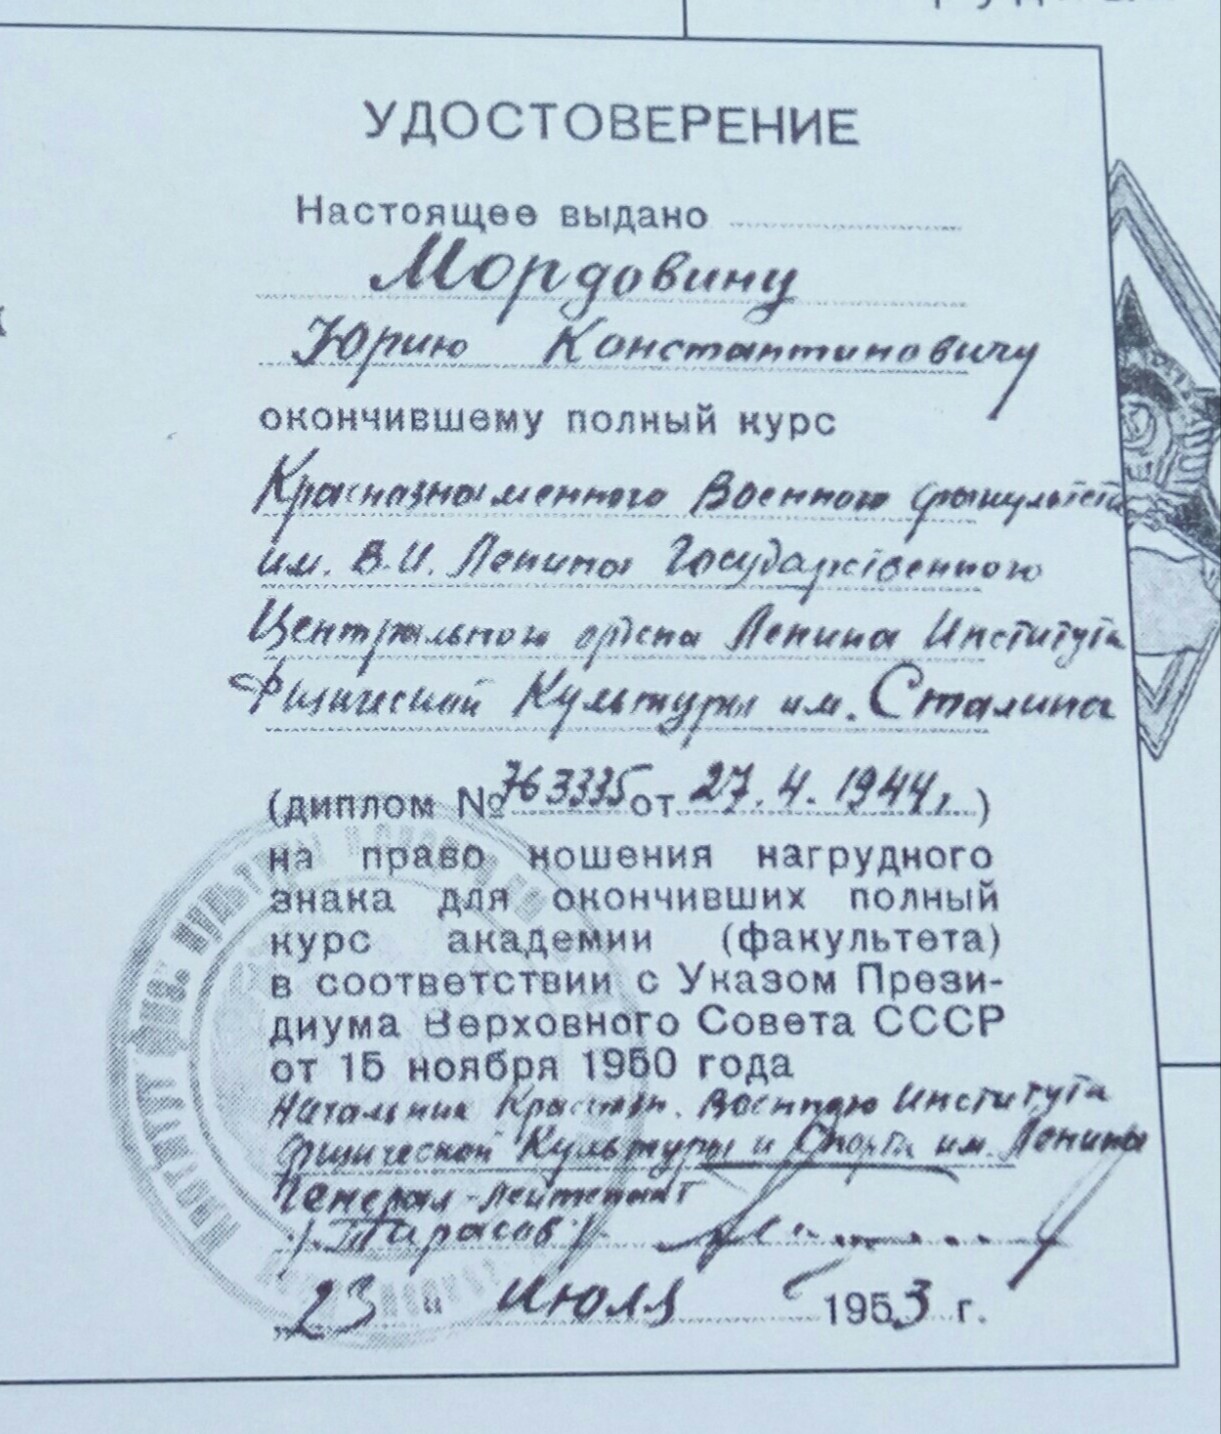 УДОСТОВЕРЕНИЕ
Настоящее выдано
Мордовину
Юрию Константиновичу
окончившему полный курс
Краснознаменного Военного факультета
им. В.И. Ленина Государственного
Центрального ордена Ленина Института
Физической Культуры им. Сталина
(диплом № 763335 от 27.4.1944г.)
на право ношения нагрудного
знака для окончивших полный
курс академии (факультета)
в соответствии с Указом Прези-
диума Верховного Совета СССР
от 15 ноября 1950 года
Начальник Краснозн. Военного Института
Физической Культуры и Спорта им. Ленина
Генерал-лейтенант
/Тарасов/
23 " июля 1953 г.